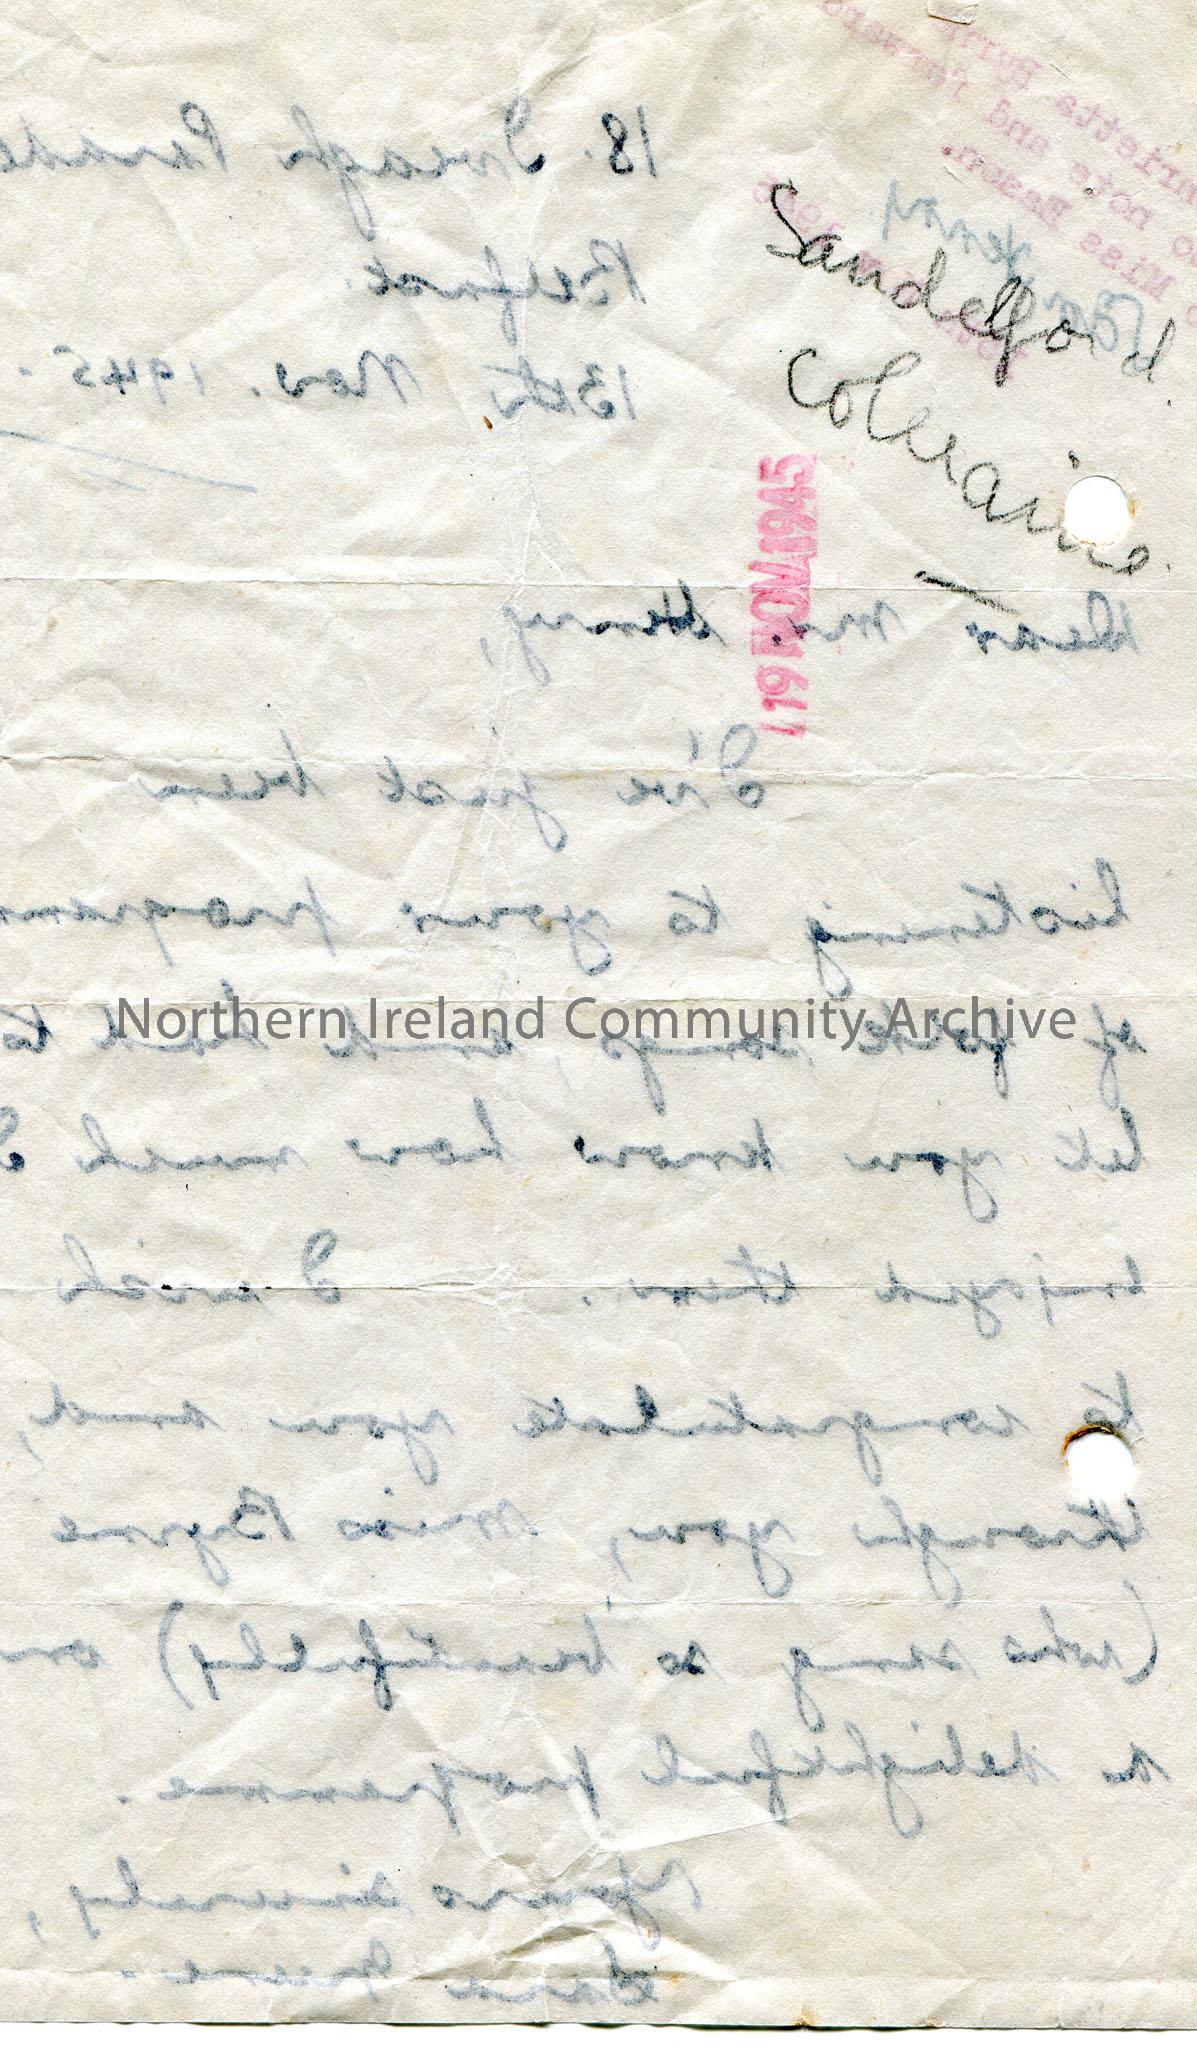 Sandelford
Coleraine.
19 NOV 1945
18. Iveagh Parade
Belfast.
13th Nov. 1945.
Dear Mr. Henry,
I've just been
listening to your programm
of folk songs, and had to
let you know how much I
enjoyed them. I wish
to congratulate you and,
through you, Miss Byrne
(who sang so beautifully) on
a delightful programme.
Yours sincerely,
Sara Greene.
Henry
Miss Eason.
note and forward
Northern Ireland Community Archive